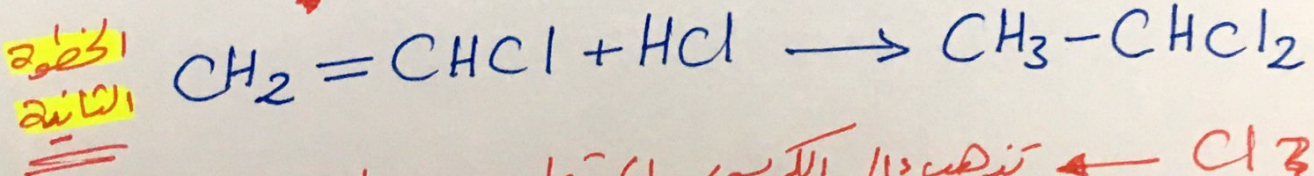 الخطوة الثانية
CH₂ = CHCl + HCl ⟶ CH₃ - CHCl₂
Cl ← تذهب